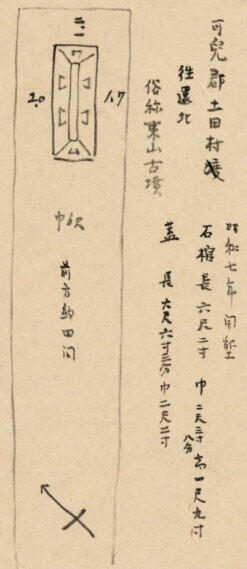 可児郡土田村渡
往還北
俗称東山古墳
昭和七年開墾
石棺長六尺二寸 巾二尺三寸八分 高一尺九寸
蓋 長六尺六寸三分巾二尺二寸
2.0
1.7
巾6尺
前方約四間